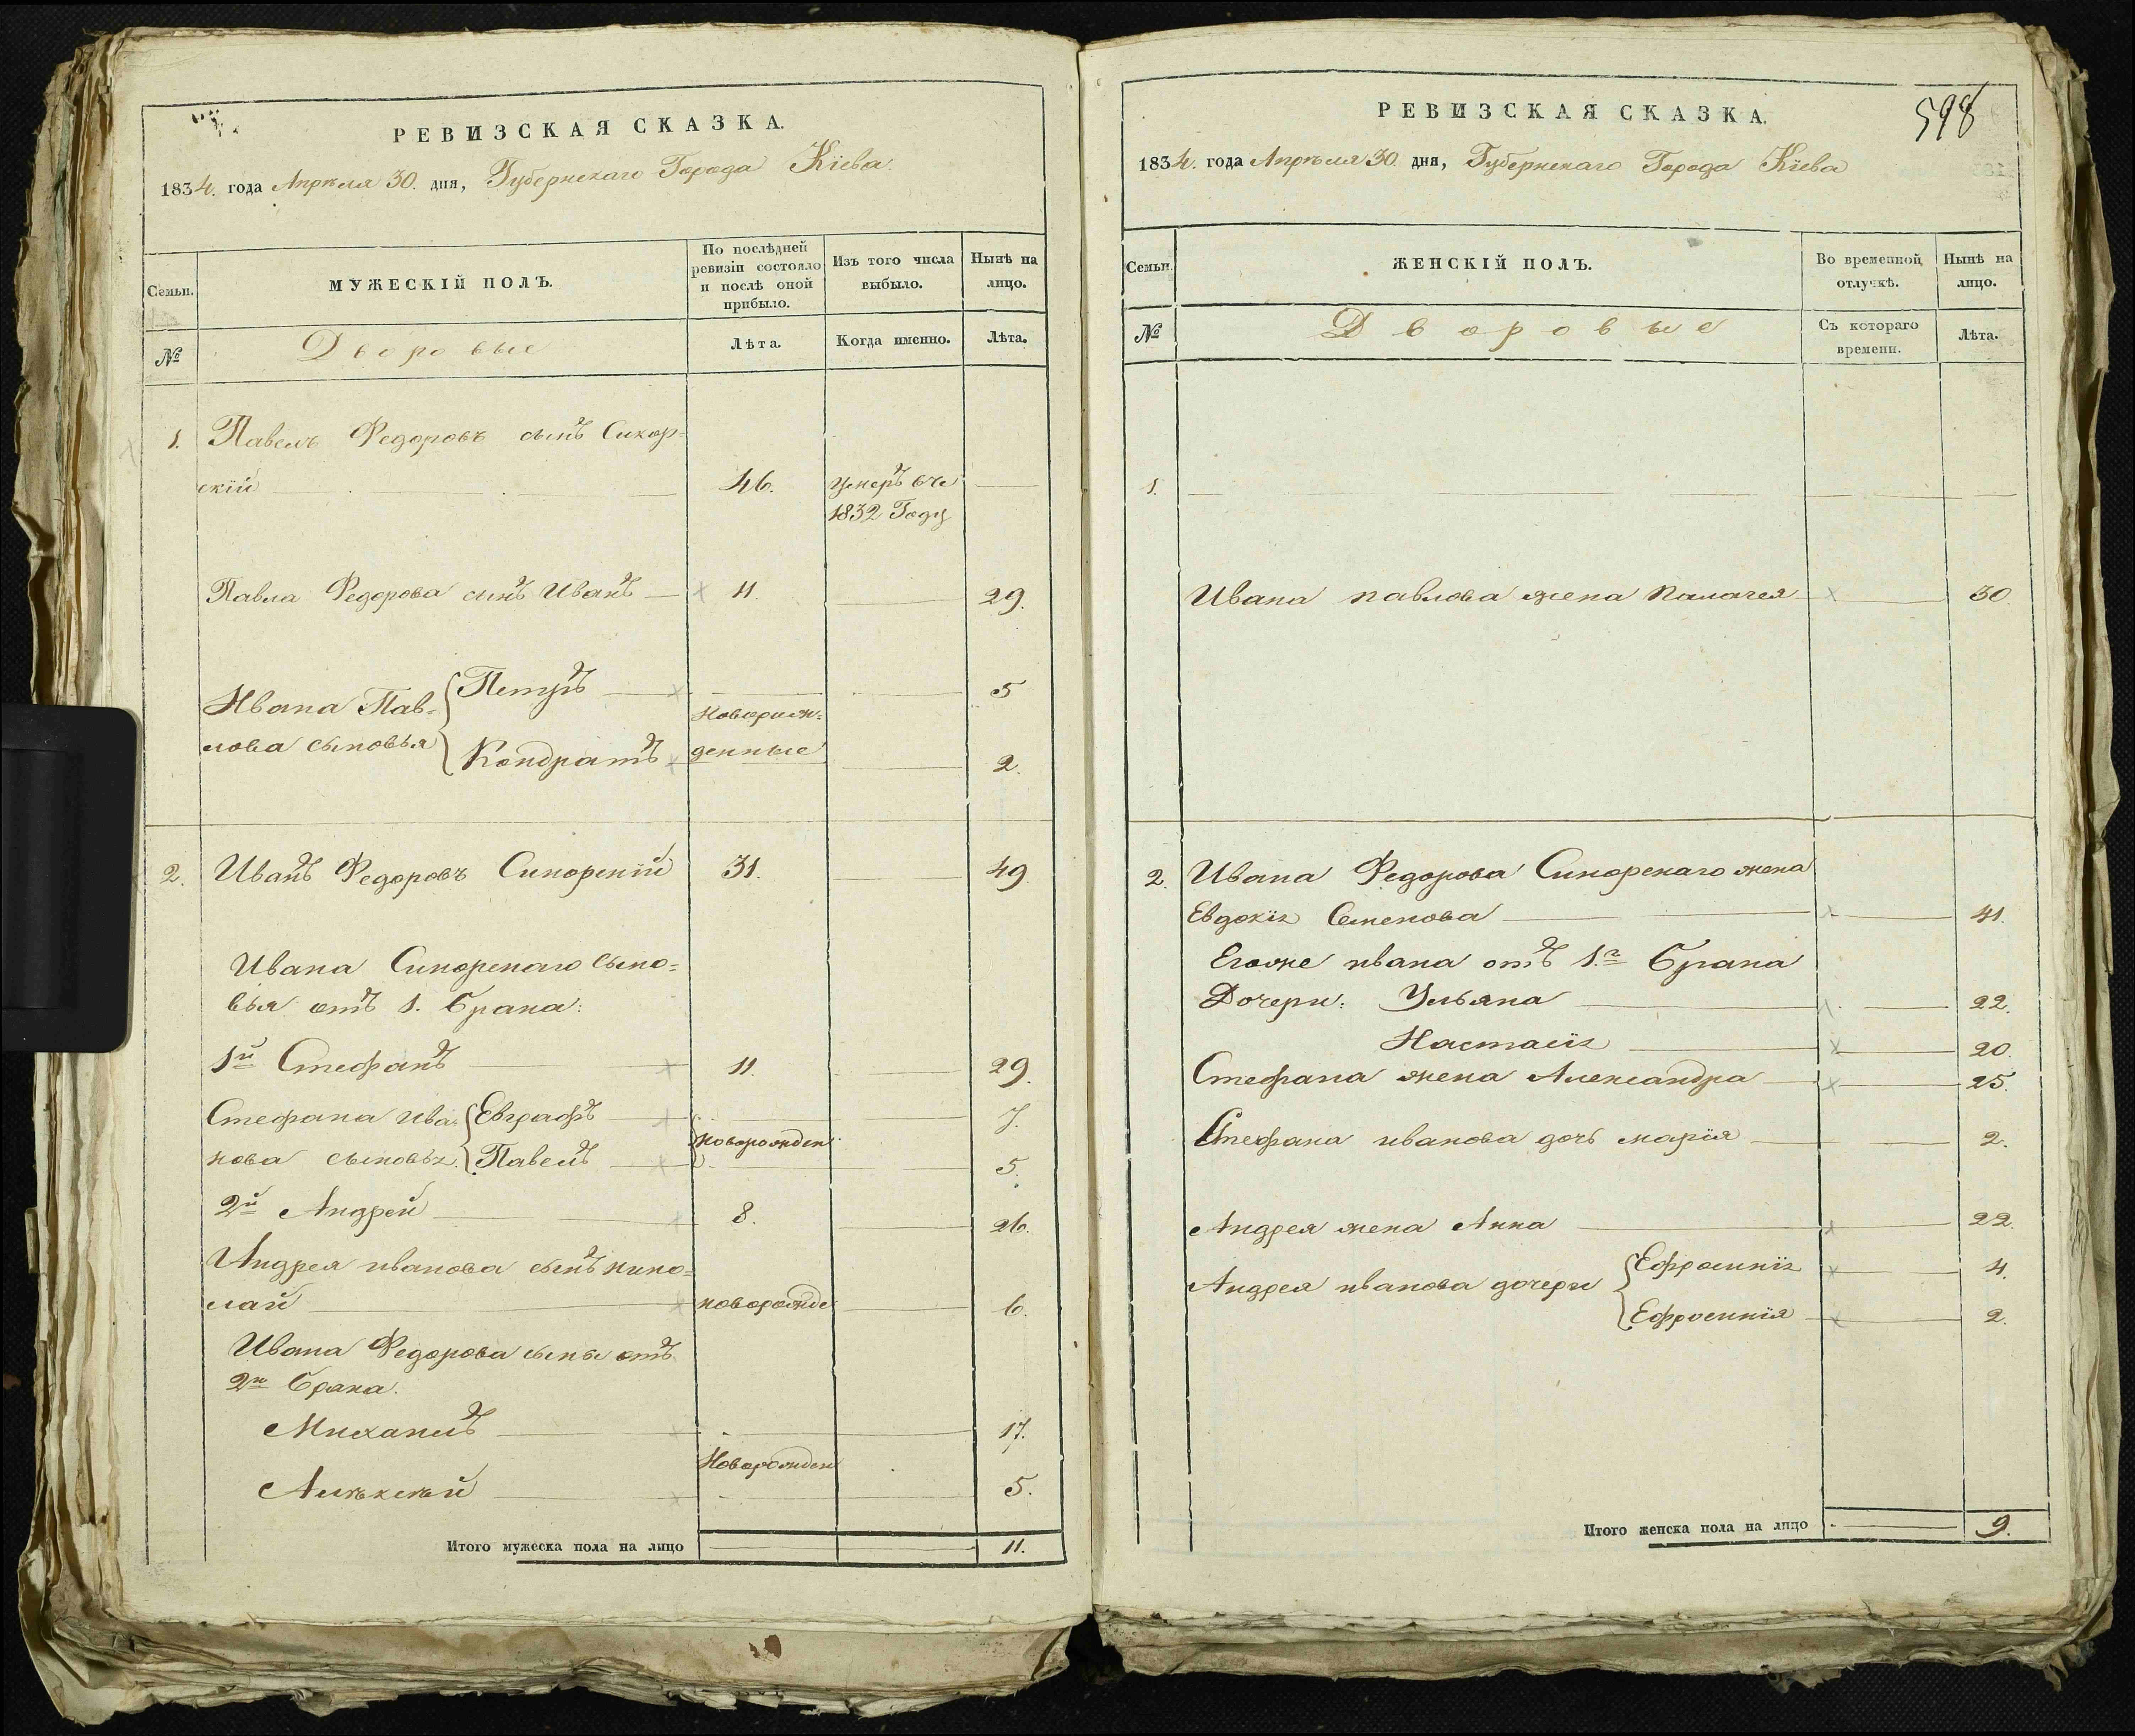 РЕВИЗСКАЯ СКАЗКА.
1834. года Апрѣля 30. дня, Губернскаго Города Кіева.
Семьи.
МУЖЕСКІЙ ПОЛЪ.
По послѣдней ревизіи состояло и послѣ оной прибыло.
Изъ того числа выбыло.
Нынѣ на лицо.
№
Дворовые
Лѣта.
Когда именно.
Лѣта.
1. Павелъ Федоровъ сынъ Сикор=
скій 46. умеръ въ
1832 Году
Павла Федорова сынъ Иванъ 11. 29.
Ивана Пав=
лова сыновья
Петръ 5
Новорож=
денные
Кондратъ 2.
2. Иванъ Федоровъ Сикорскій 31. 49
Ивана Сикорскаго сыно=
вья отъ 1. брака:
1й Стефанъ 11. 29.
Стефана Ива=
нова сыновья.
Евграфъ 7.
новорожден
Павелъ 5.
2й Андрей 8. 26.
Андрея иванова сынъ нико=
лай новорожде 6.
Ивана Федорова сыны отъ
2го брака.
Михаилъ 17.
Новорожден
Алѣксѣй 5.
Итого мужеска пола на лицо 11.
598
РЕВИЗСКАЯ СКАЗКА.
1834. года Апрѣля 30. дня, Губернскаго Города Кіева
Семьи.
ЖЕНСКІЙ ПОЛЪ.
Во временной отлучкѣ.
Нынѣ на лицо.
№
Дворовые
Съ котораго времени.
Лѣта.
1.
Ивана павлова жена Палагея 30
2. Ивана Федорова Сикорскаго жена
Евдокія Семенова 41.
Егоже ивана отъ 1го брака
Дочери: Ульяна 22.
Настасія 20.
Стефана жена Александра 25.
Стефана иванова дочь марія 2.
Андрея жена Анна 22.
Андрея иванова дочери
Ефросинія 4.
Ефросинія 2.
Итого женска пола на лицо 9.